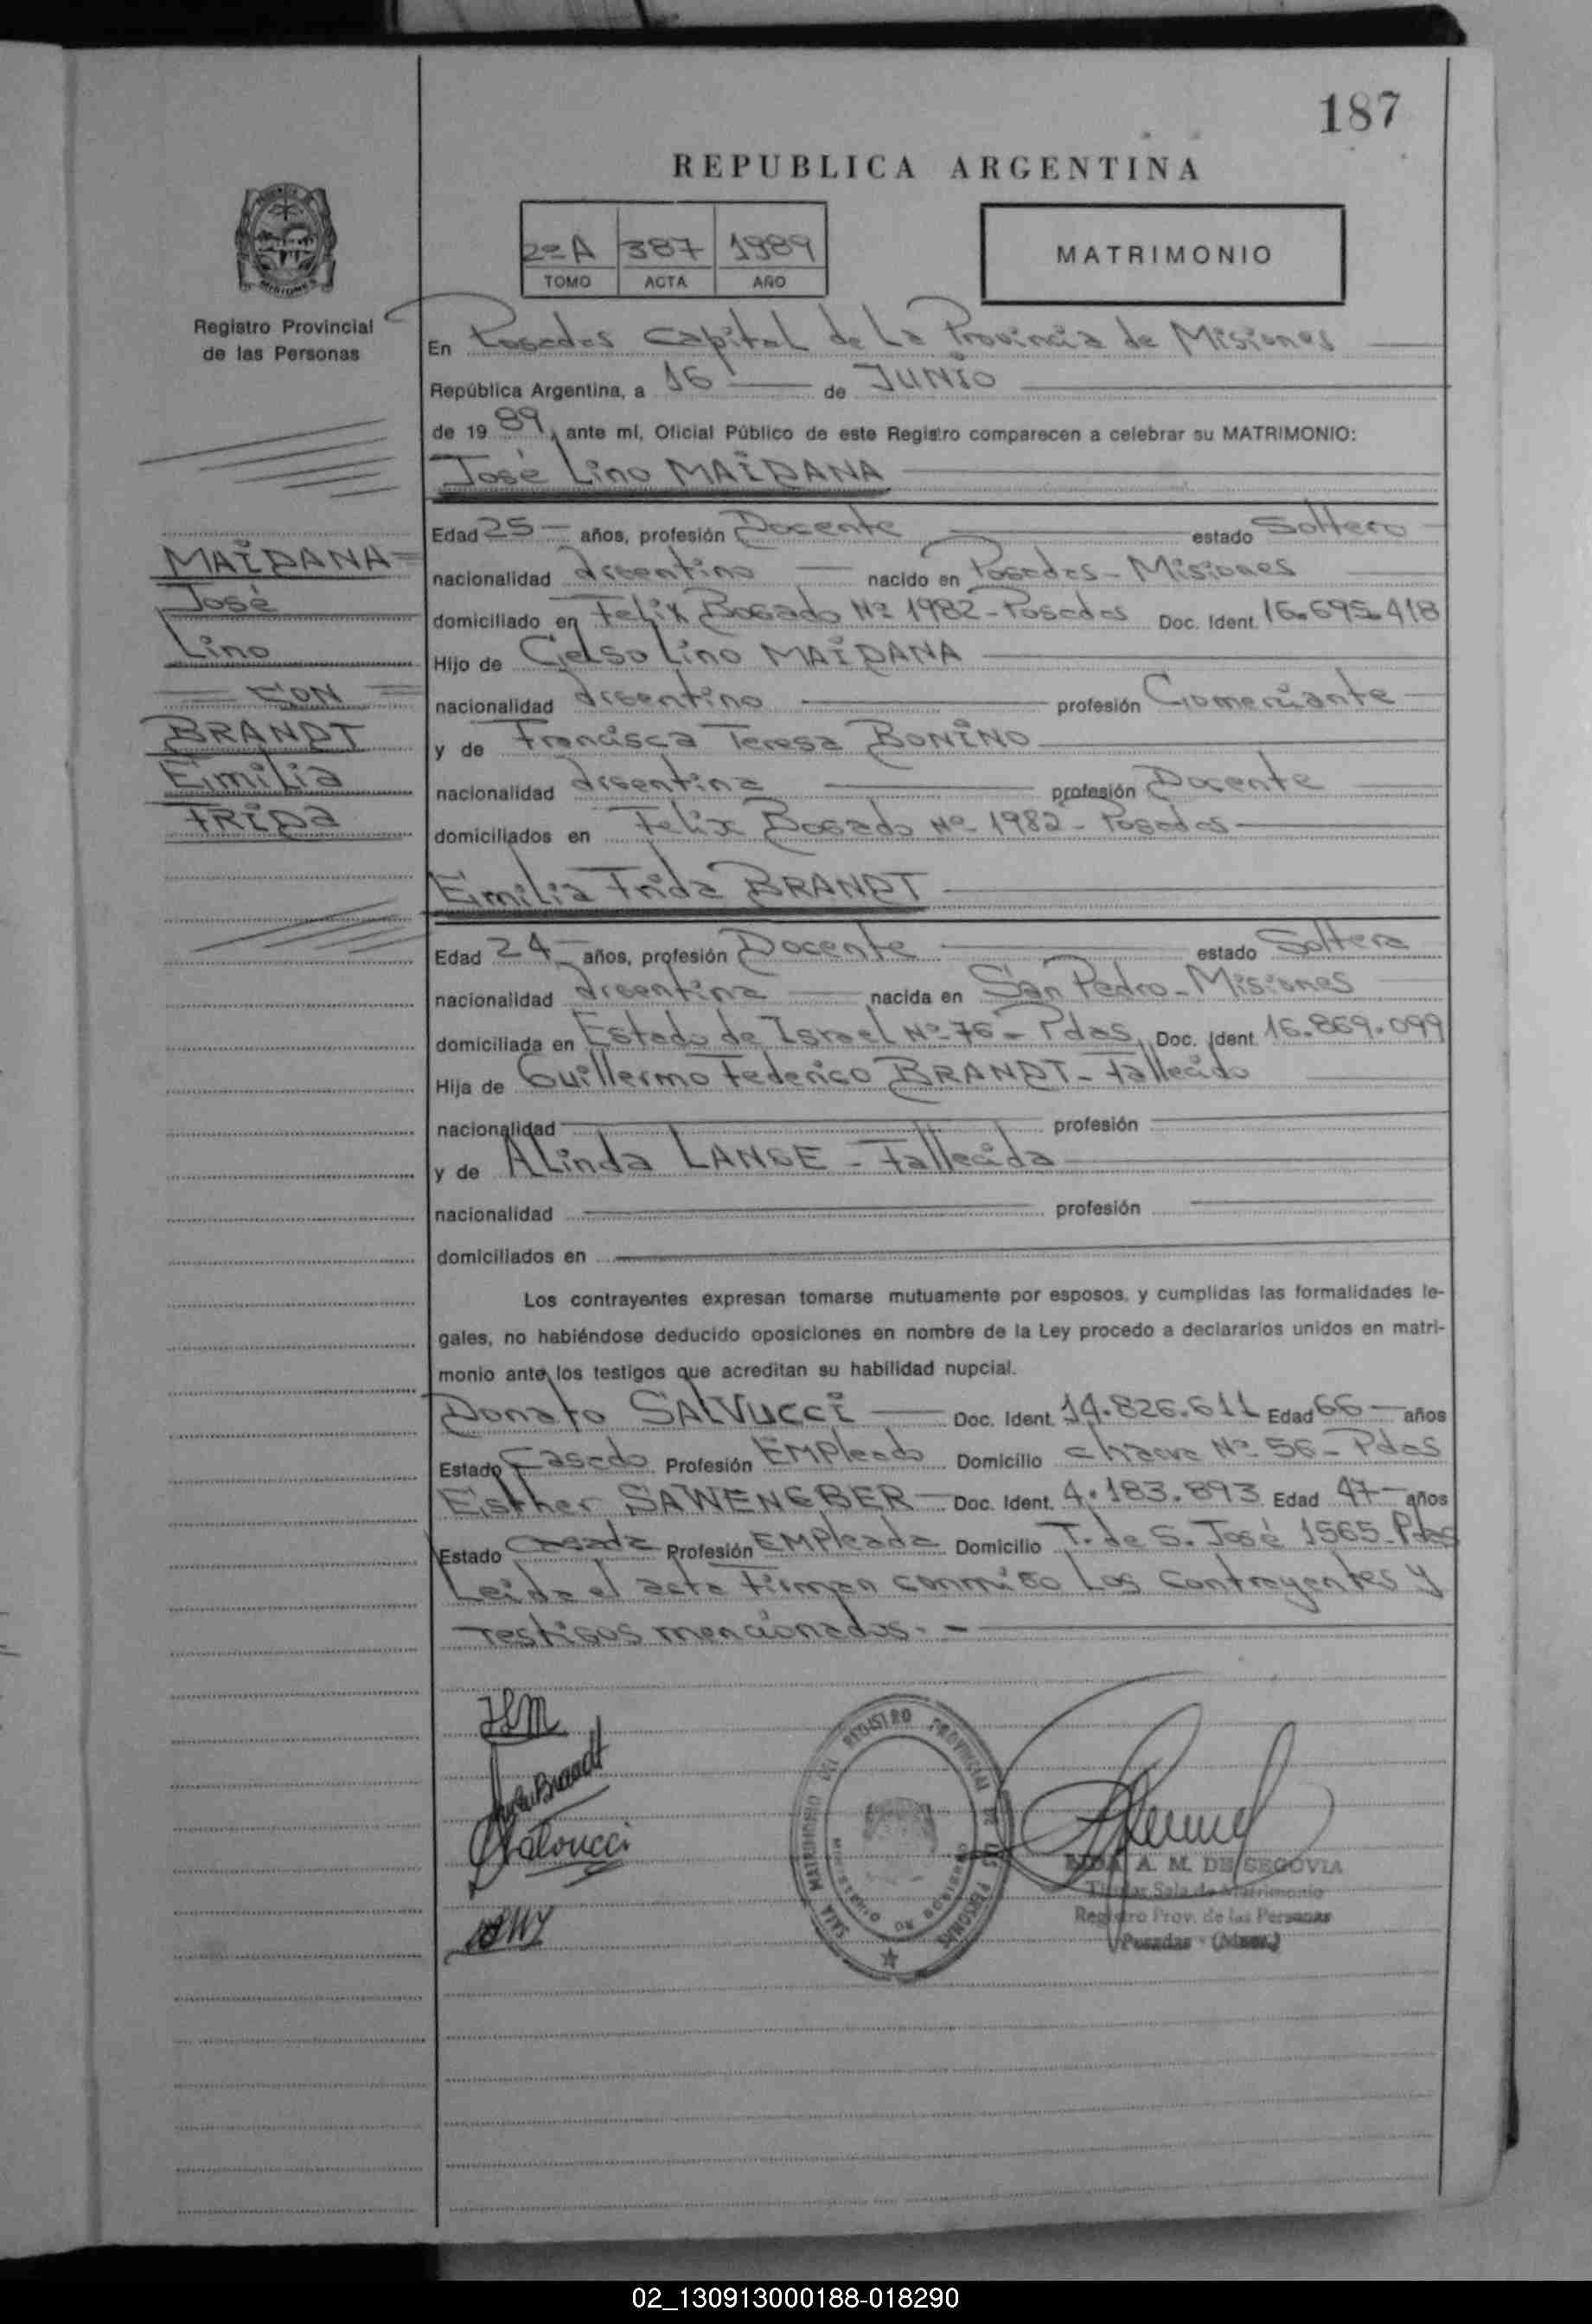 187
REPUBLICA ARGENTINA
2º A 387 1989
TOMO ACTA AÑO
MATRIMONIO
Registro Provincial
de las Personas
En Posadas Capital de La Provincia de Misiones
República Argentina, a 16 de JUNIO
de 19 89, ante mí, Oficial Público de este Registro comparecen a celebrar su MATRIMONIO:
José Lino MAIDANA
Edad 25 años, profesión Docente estado Soltero
nacionalidad Argentino nacido en Posadas - Misiones
domiciliado en Felix Bogado Nº 1982 - Posadas Doc. Ident. 16.695.418
Hijo de Celso Lino MAIDANA
nacionalidad Argentino profesión Comerciante
y de Francisca Teresa BONINO
nacionalidad Argentina profesión Docente
domiciliados en Felix Bogado Nº 1982 - Posadas
MAIDANA
José
Lino
CON
BRANDT
Emilia
FRIDA
Emilia Frida BRANDT
Edad 24 años, profesión Docente estado Soltera
nacionalidad Argentina nacida en San Pedro - Misiones
domiciliada en Estado de Israel Nº 76 - Pdas. Doc. Ident. 16.869.099
Hija de Guillermo Federico BRANDT - Fallecido
nacionalidad profesión
y de ALinda LANGE - Fallecida
nacionalidad profesión
domiciliados en
Los contrayentes expresan tomarse mutuamente por esposos, y cumplidas las formalidades le-
gales, no habiéndose deducido oposiciones en nombre de la Ley procedo a declararlos unidos en matri-
monio ante los testigos que acreditan su habilidad nupcial.
Donato SALVUCCI Doc. Ident. 14.826.611 Edad 66 años
Estado Casado Profesión EMPleado Domicilio Chacra Nº 56 - Pdas
Esther SAWENEBER Doc. Ident. 4.183.893 Edad 47 años
Estado Casada Profesión EMPleada Domicilio T. de S. José 1565 - Pdas
Leida el acta Firman conmigo Los Contrayentes y
Testigos mencionados. -
JLM
Brandt
Salvucci
SALA MATRIMONIO DEL REGISTRO PROVINCIAL DE LAS PERSONAS
MINISTERIO DE GOBIERNO
A. M. DE SEGOVIA
Titular Sala de Matrimonio
Registro Prov. de las Personas
Posadas - (Mnes.)
02_130913000188-018290